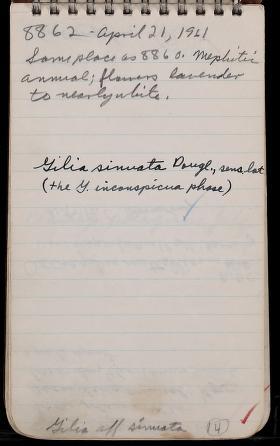 8862 - April 21, 1961
Same place as 8860. Mephitic
annual; flowers lavender
to nearly white.
Gilia sinuata Dougl., sens. lat
(the G. inconspicua phase)
Gilia aff sinuata 14